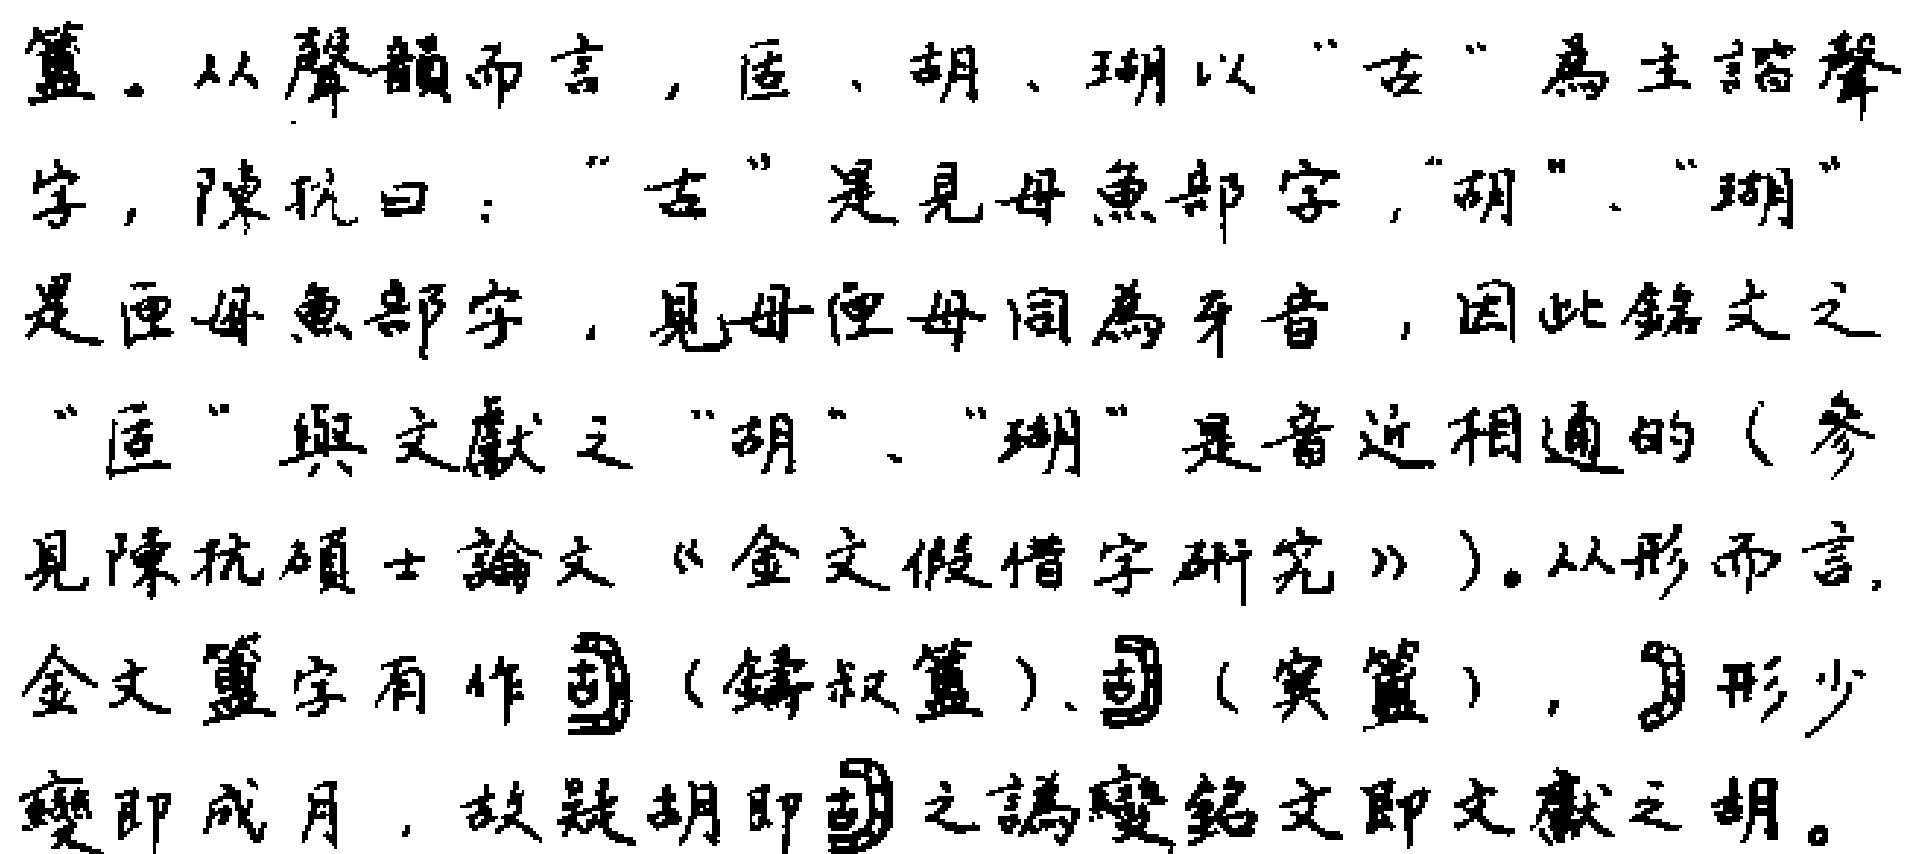 簠。从聲韻而言，匼、胡、瑚以“古”為主諧聲
字，陳抗曰：“古”是見母魚部字，“胡”、“瑚”
是匣母魚部字，見母匣母同為牙音，因此銘文之
“匼”與文獻之“胡”、“瑚”是音近相通的（參
見陳抗碩士論文《金文假借字研究》）。从形而言，
金文簠字有作（鑄叔簠）、（簠），形少
變即成月，故疑胡即之譌變銘文即文獻之胡。